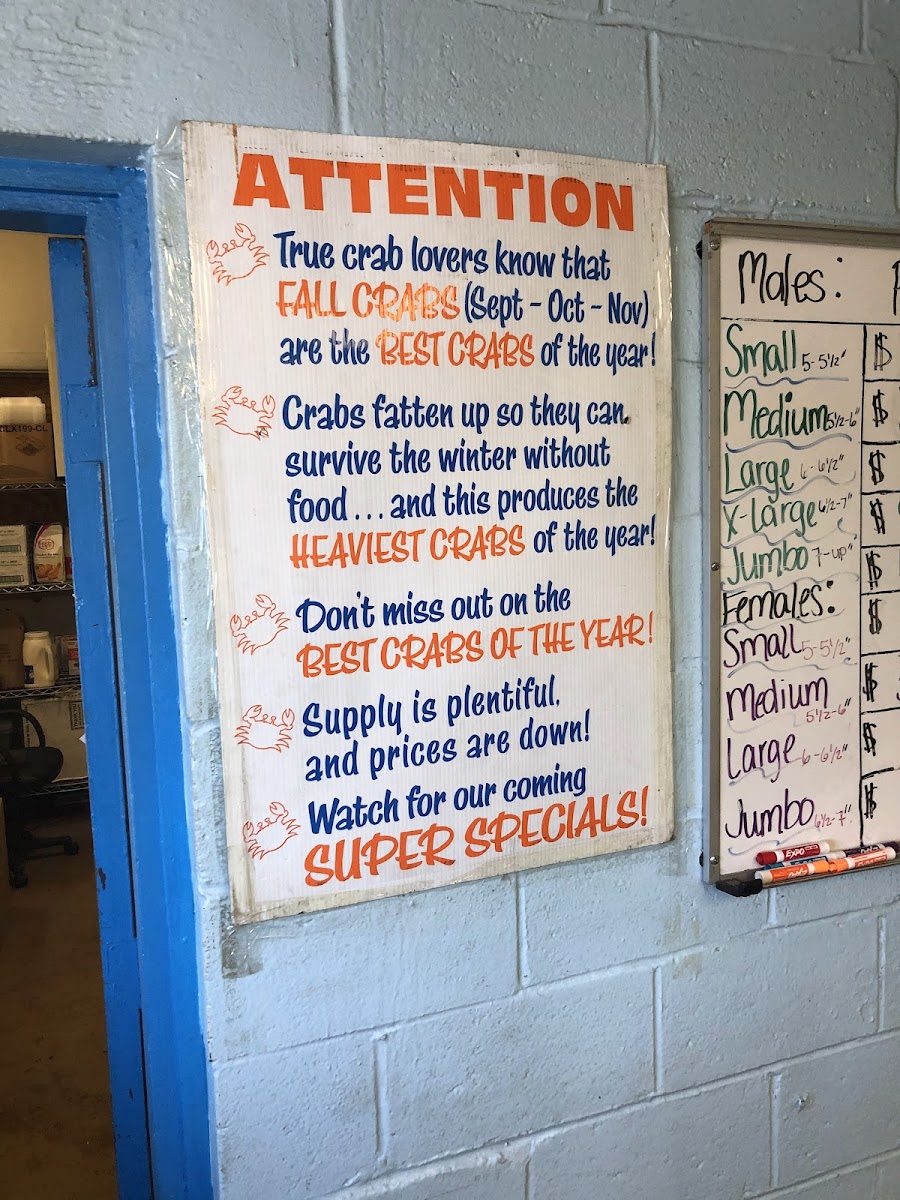 ATTENTION
True crab lovers know that
FALL CRABS (Sept - Oct - Nov)
are the BEST CRABS of the year!
Crabs fatten up so they can
survive the winter without
food ... and this produces the
HEAVIEST CRABS of the year!
Don't miss out on the
BEST CRABS OF THE YEAR!
Supply is plentiful,
and prices are down!
Watch for our coming
SUPER SPECIALS!
Males:
Small 5-5½" $
Medium 5½-6" $
Large 6-6½" $
X-Large 6½-7" $
Jumbo 7-up" $
Females: $
Small 5-5½" $
Medium 5½-6" $
Large 6-6½" $
Jumbo 6½-7"
EXPO